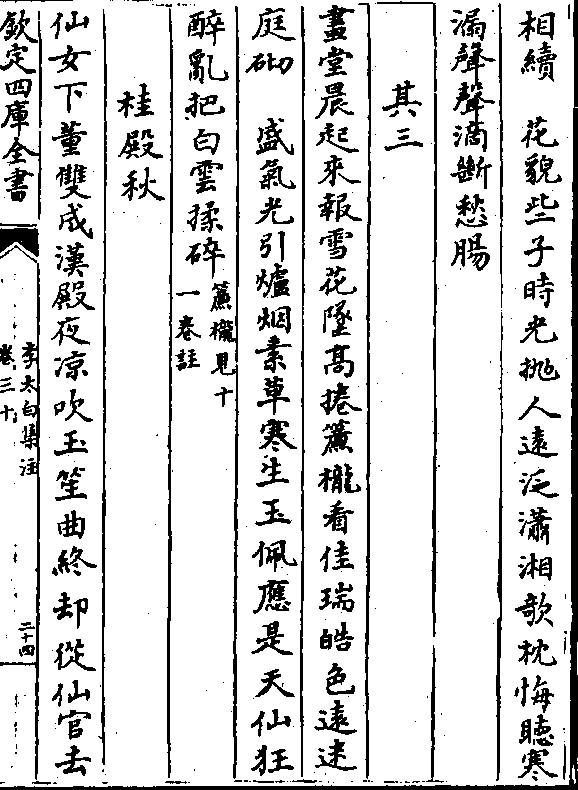 相續　花貌些子時光抛人遠泛瀟湘欹枕悔聽寒
漏聲聲滴斷愁腸
其三
畫堂晨起來報雪花墜髙捲簾櫳看佳瑞皓色逺迷
庭砌　盛氣光引爐烟素草寒生玉佩應是天仙狂
醉亂把白雲揉碎簾櫳見十
一卷註
桂殿秋
仙女下董雙成漢殿夜凉吹玉笙曲終却從仙官去
欽定四庫全書
李太白集注
卷三十
二十四